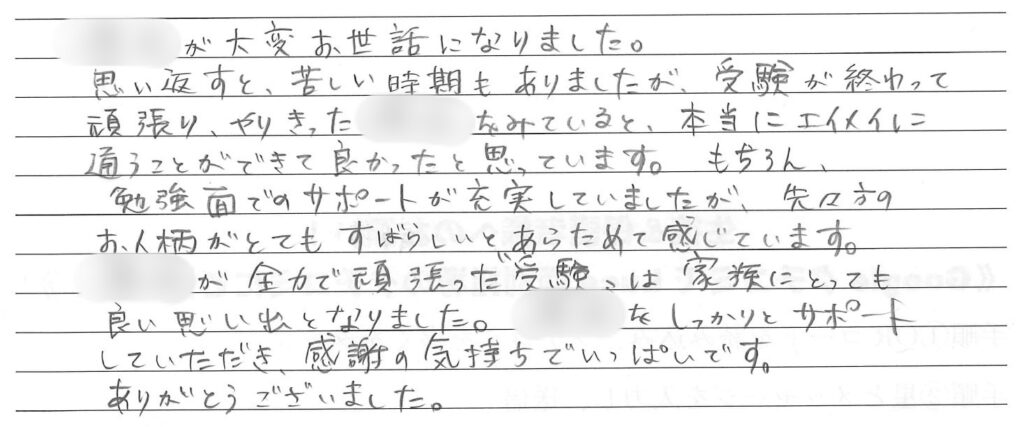 が大変お世話になりました。
思い返すと、苦しい時期もありましたが、受験が終わって
頑張り、やりきった を みていると、本当にエイメイに
通うことができて良かったと思っています。 もちろん、
勉強面でのサポートが充実していましたが、先々方の
お人柄がとてもすばらしいとあらためて感じています。
が全力で頑張った"受験"は家族にとっても
良い思い出となりました。 をしっかりとサポート
していただき、感謝の気持ちでいっぱいです。
ありがとうございました。